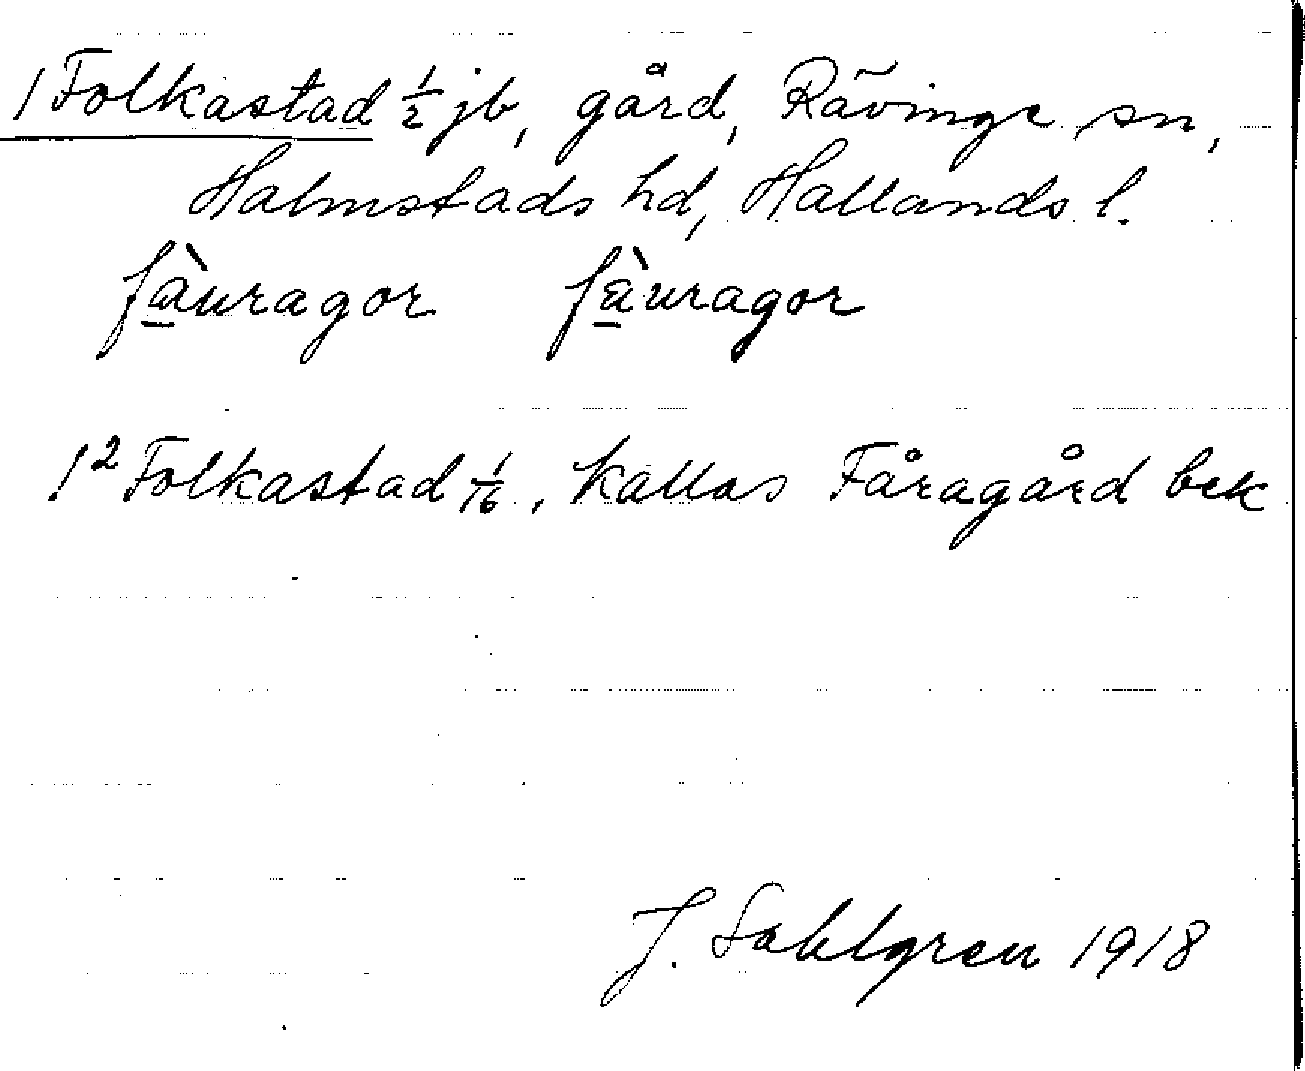 1 Folkastad ½ jb, gård, Rävinge sn,
Halmstads hd, Hallands l.
fàuragor fàuragor
1² Folkastad 1/16, kallas Fåragård bek
J. Sahlgren 1918